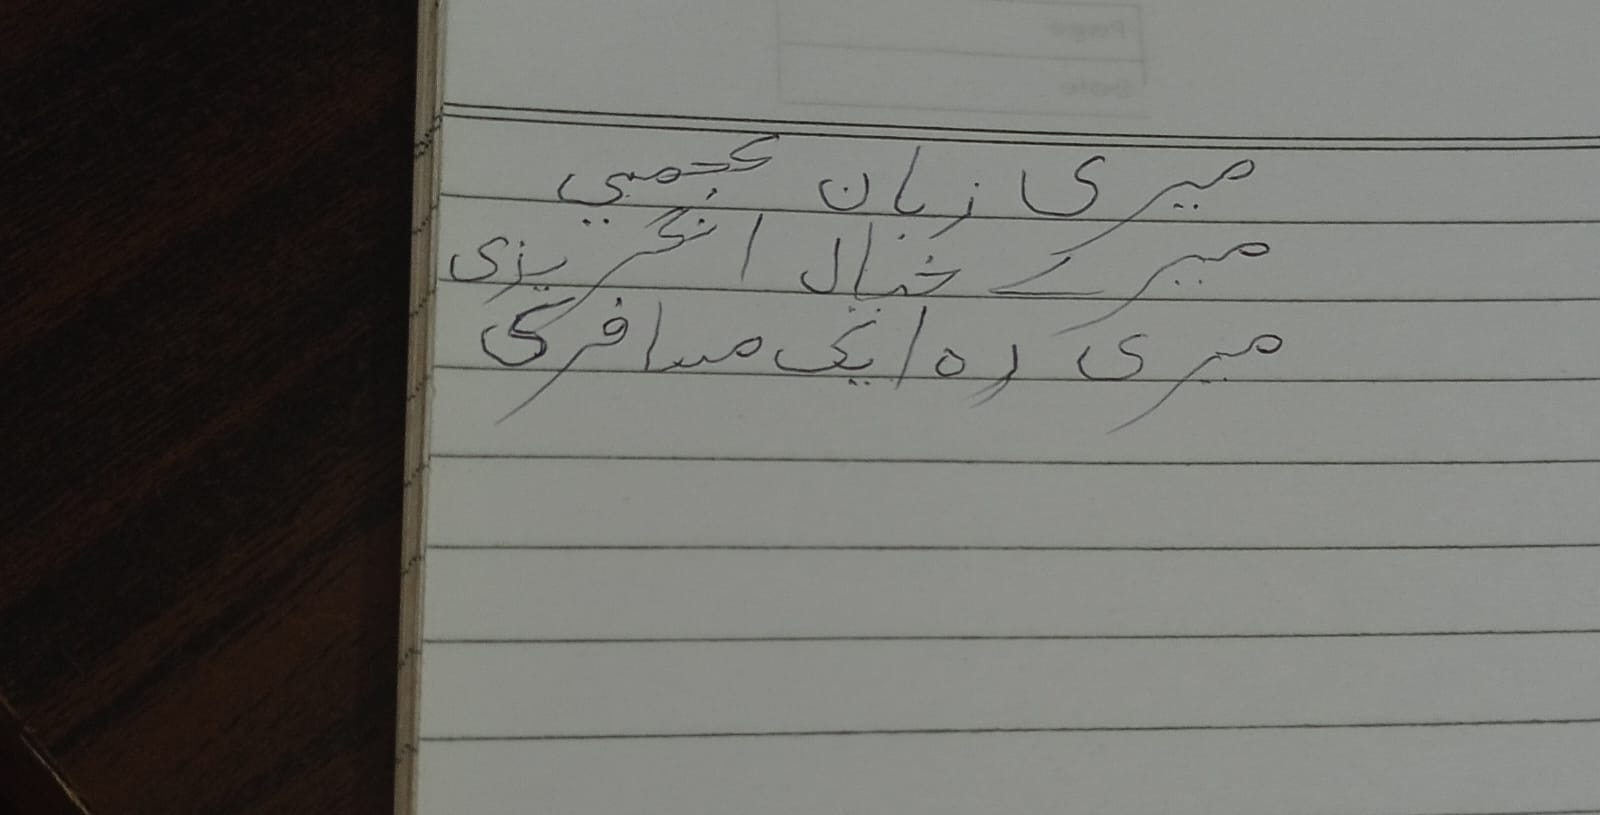 میری زبان عجمی
میرے خیال انگریزی
میری رہ ایک مسافر کی